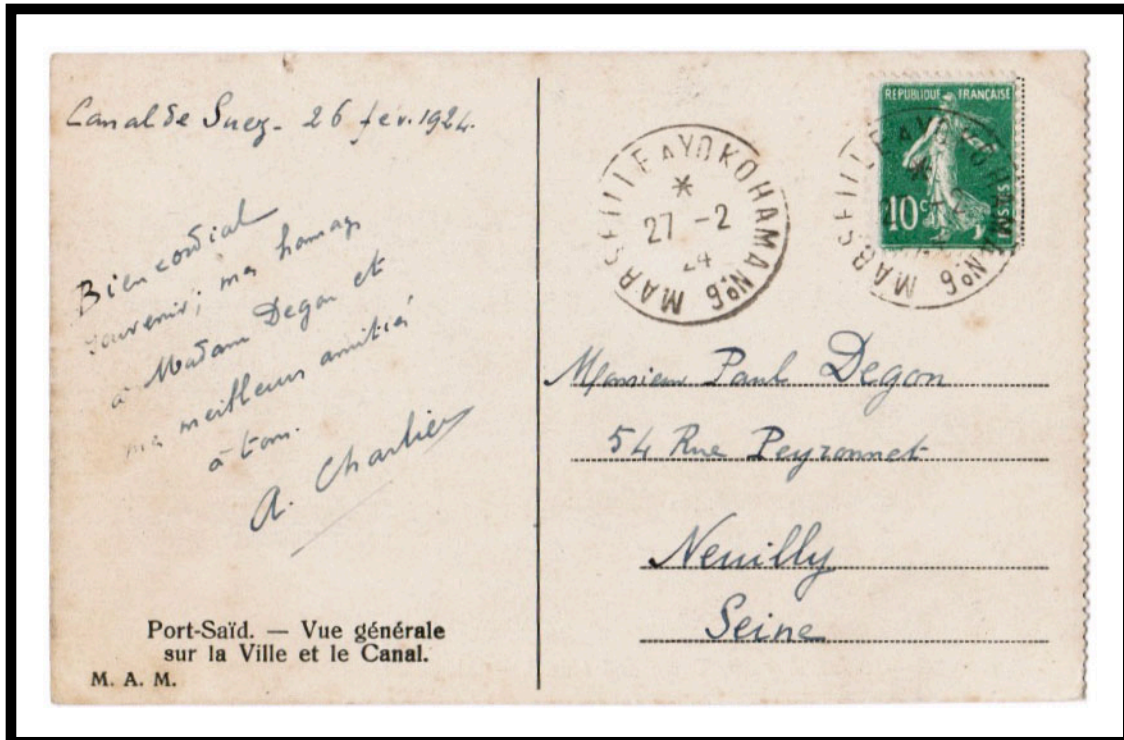 Canal de Suez - 26 fév. 1924.
Bien cordial
souvenir; mes hommages
à Madame Degon et
mes meilleures amitiés
à tous.
A. Charlier
Port-Saïd. — Vue générale
sur la Ville et le Canal.
M. A. M.
MARSEILLE A YOKOHAMA Nº6
*
27 -2
24
REPUBLIQUE FRANÇAISE
10c
POSTES
MARSEILLE A YOKOHAMA Nº6
*
Monsieur Paul Degon
54 Rue Peyronnet
Neuilly
Seine